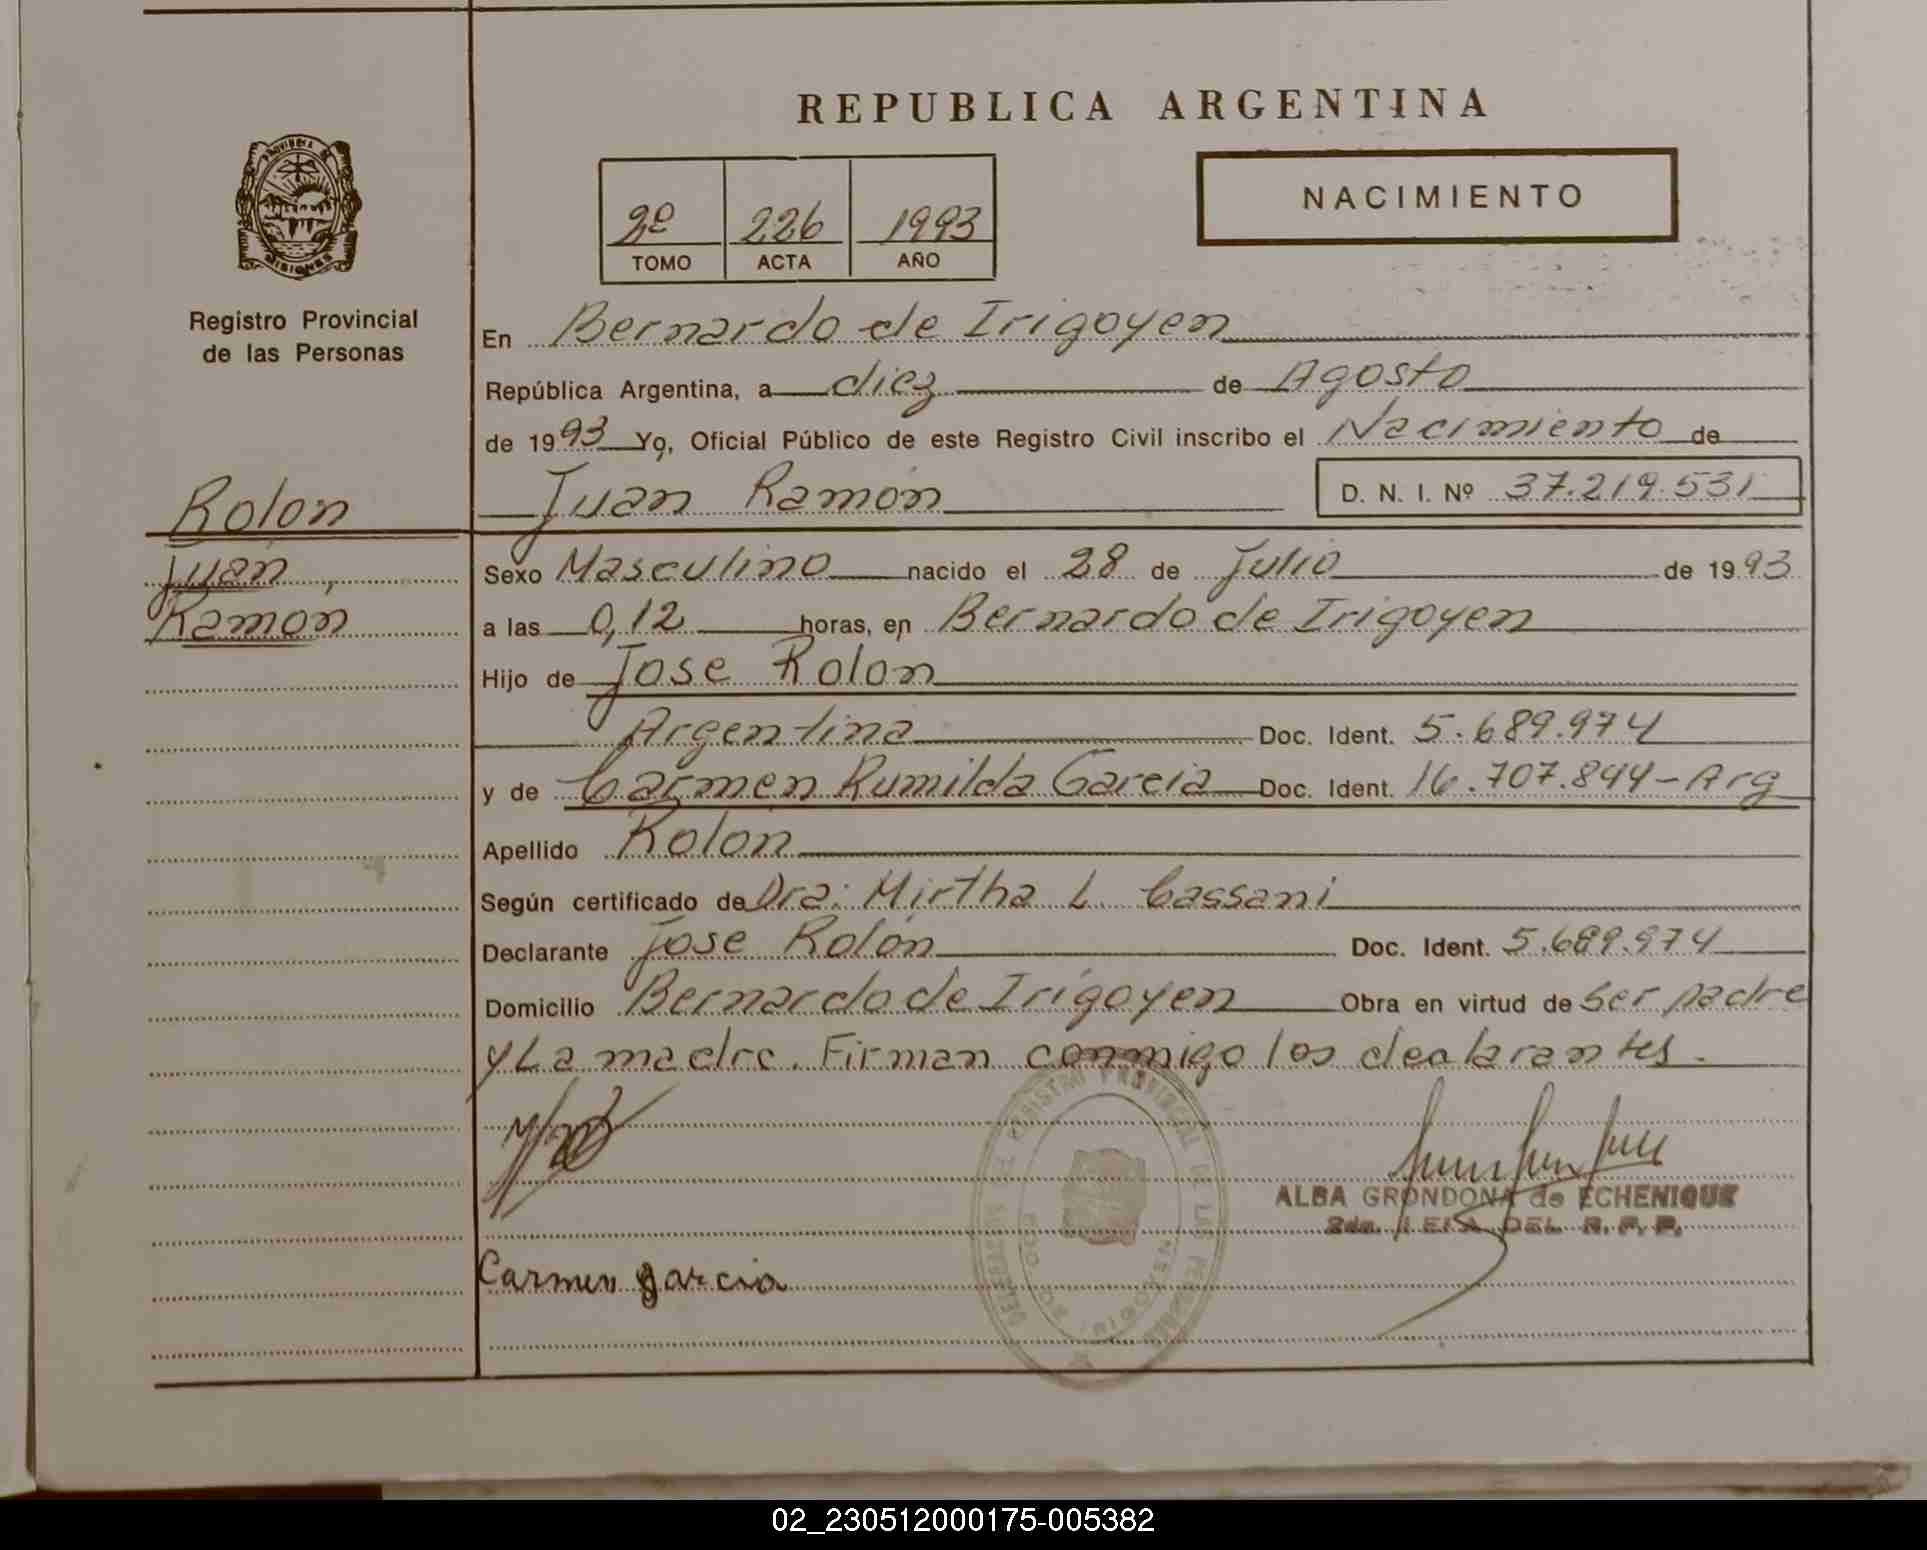 REPUBLICA ARGENTINA
PROVINCIA DE
MISIONES
Registro Provincial
de las Personas
2º 226 1993
TOMO ACTA AÑO
NACIMIENTO
En Bernardo de Irigoyen
República Argentina, a diez de Agosto
de 1993 Yo, Oficial Público de este Registro Civil inscribo el Nacimiento de
Juan Ramón
D. N. I. Nº 37.219.531
Rolon
Juan,
Ramón
Sexo Masculino nacido el 28 de Julio de 1993
a las 0,12 horas, en Bernardo de Irigoyen
Hijo de Jose Rolon
Argentina Doc. Ident. 5.689.974
y de Carmen Rumilda Garcia Doc. Ident. 16.707.844-Arg
Apellido Rolon
Según certificado de Dra: Mirtha L. Cassani
Declarante Jose Rolón Doc. Ident. 5.689.974
Domicilio Bernardo de Irigoyen Obra en virtud de Ser padre
y La madre. Firman conmigo los declarantes.
REGISTRO PROVINCIAL DE LAS PERSONAS
ALBA GRONDONA de ECHENIQUE
2da. JEFA DEL R. P. P.
Carmen garcia
02_230512000175-005382